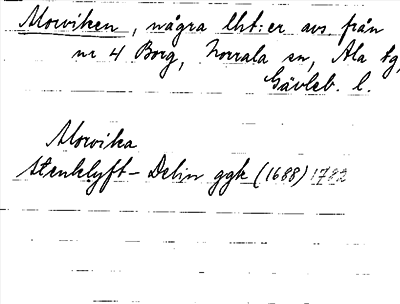 Morviken, några lht:er avs. från
nr 4 Borg, Norrala sn, Ala tg,
Gävleb. l.
Morvika
Stenklyft - Delin ggk (1688) 1782